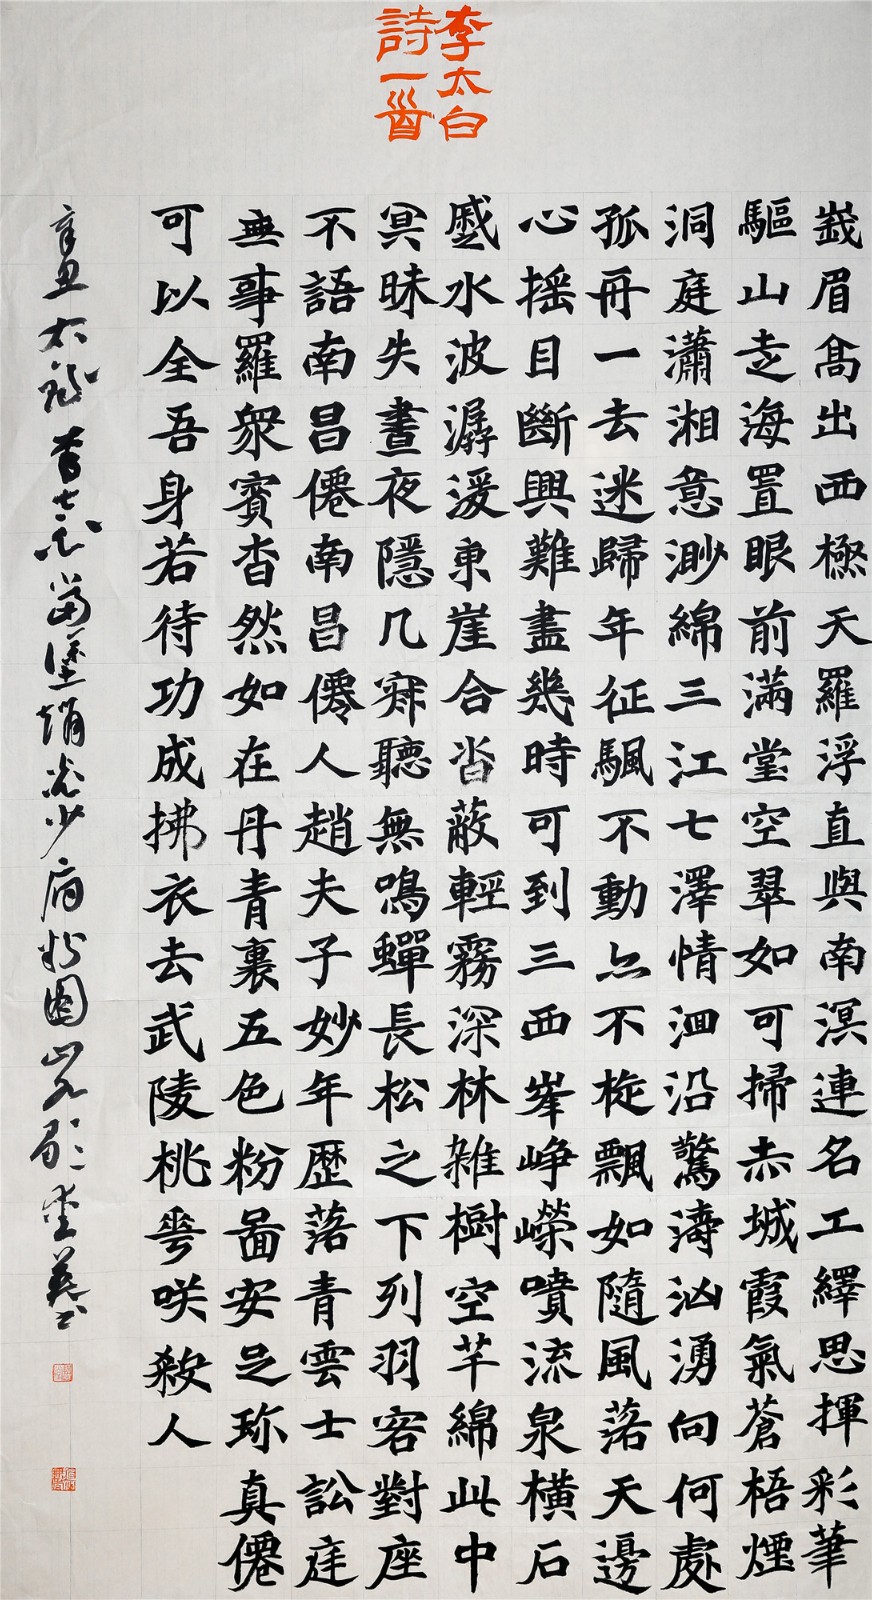 李太白
詩一首
峩眉高出西極天羅浮直與南溟連名工繹思揮彩筆
驅山走海置眼前滿堂空翠如可掃赤城霞氣蒼梧煙
洞庭瀟湘意渺綿三江七澤情洄沿驚濤洶湧向何處
孤舟一去迷歸年征颿不動亦不旋飄如隨風落天邊
心搖目斷興難盡幾時可到三西峯崢嶸噴流泉橫石
蹙水波潺湲東崖合沓蔽輕霧深林雜樹空芊綿此中
冥昧失晝夜隱几寂聽無鳴蟬長松之下列羽客對座
不語南昌僊南昌僊人趙夫子妙年歷落青雲士訟庭
無事羅衆賓杳然如在丹青裏五色粉圖安足珎真僊
可以全吾身若待功成拂衣去武陵桃華咲殺人
辛丑